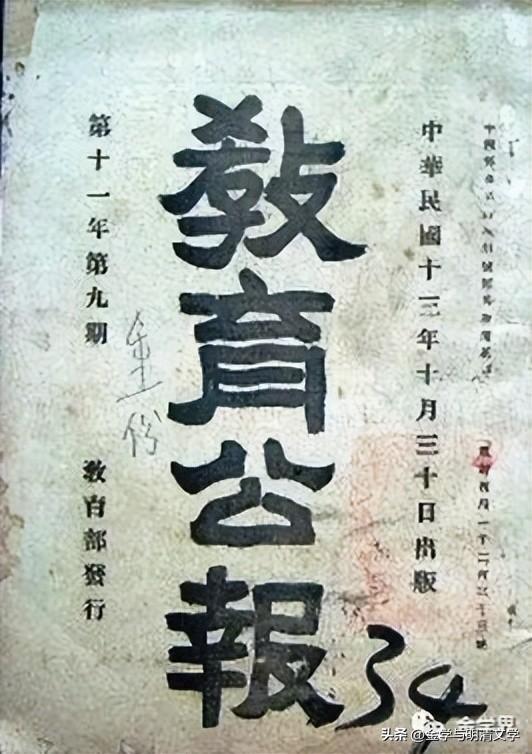 中華民國十三年十月三十日出版
教育公報
第十一年第九期
教育部發行
重份
34
金学界
头条 @金学与明清文学